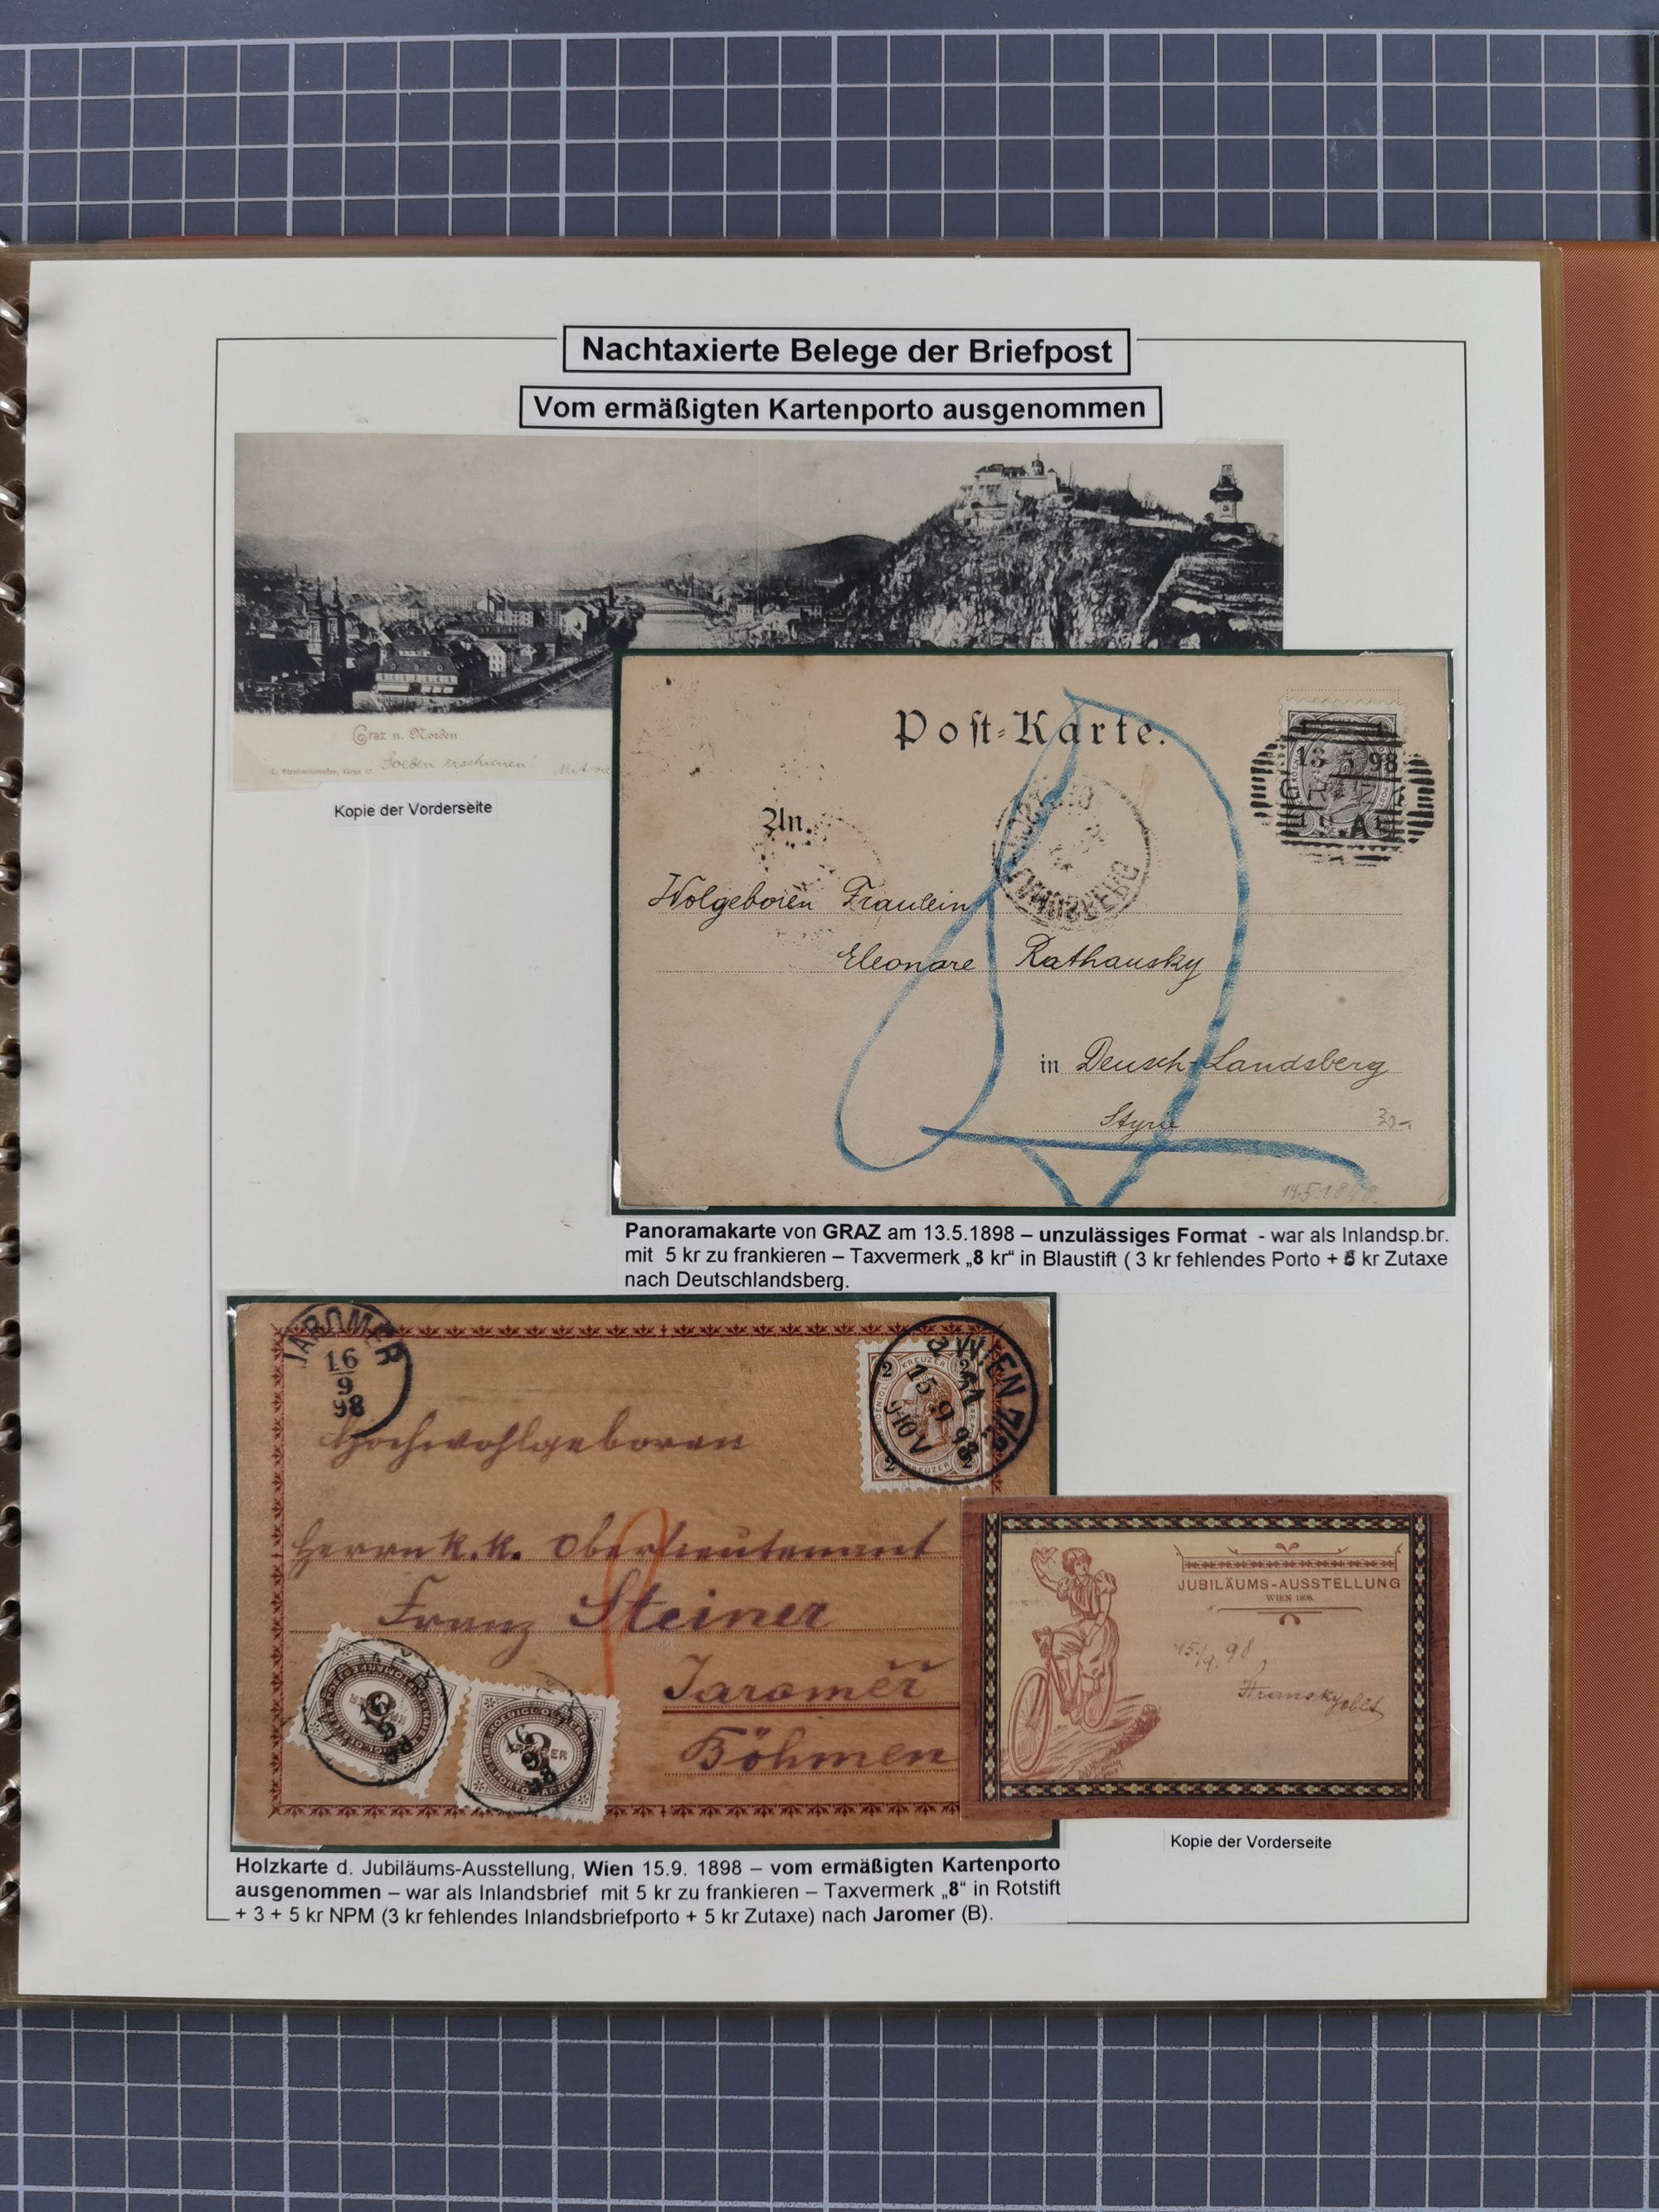 Nachtaxierte Belege der Briefpost
Vom ermäßigten Kartenporto ausgenommen
Graz n. Norden
Soeben erschienen!
Kopie der Vorderseite
Post-Karte.
13 5 98
An
Wolgeboren Fraulein
Eleonore Rathausky
in Deusch-Landsberg
Styria
30-.
14.5.1898.
Panoramakarte von GRAZ am 13.5.1898 – unzulässiges Format - war als Inlandsp.br.
mit 5 kr zu frankieren – Taxvermerk „8 kr“ in Blaustift ( 3 kr fehlendes Porto + 5 kr Zutaxe
nach Deutschlandsberg.
JAROMER
16
9
98
2 KREUZER 2
WIEN 7/2
15 9 98
9-10V
Hochwohlgeboren
Herrn k.k. Oberlieutenant
Franz Steiner
Jaroměř
Böhmen
JUBILÄUMS-AUSSTELLUNG
WIEN 1898.
15./9. 98
Kopie der Vorderseite
Holzkarte d. Jubiläums-Ausstellung, Wien 15.9. 1898 – vom ermäßigten Kartenporto
ausgenommen – war als Inlandsbrief mit 5 kr zu frankieren – Taxvermerk „8“ in Rotstift
+ 3 + 5 kr NPM (3 kr fehlendes Inlandsbriefporto + 5 kr Zutaxe) nach Jaromer (B).